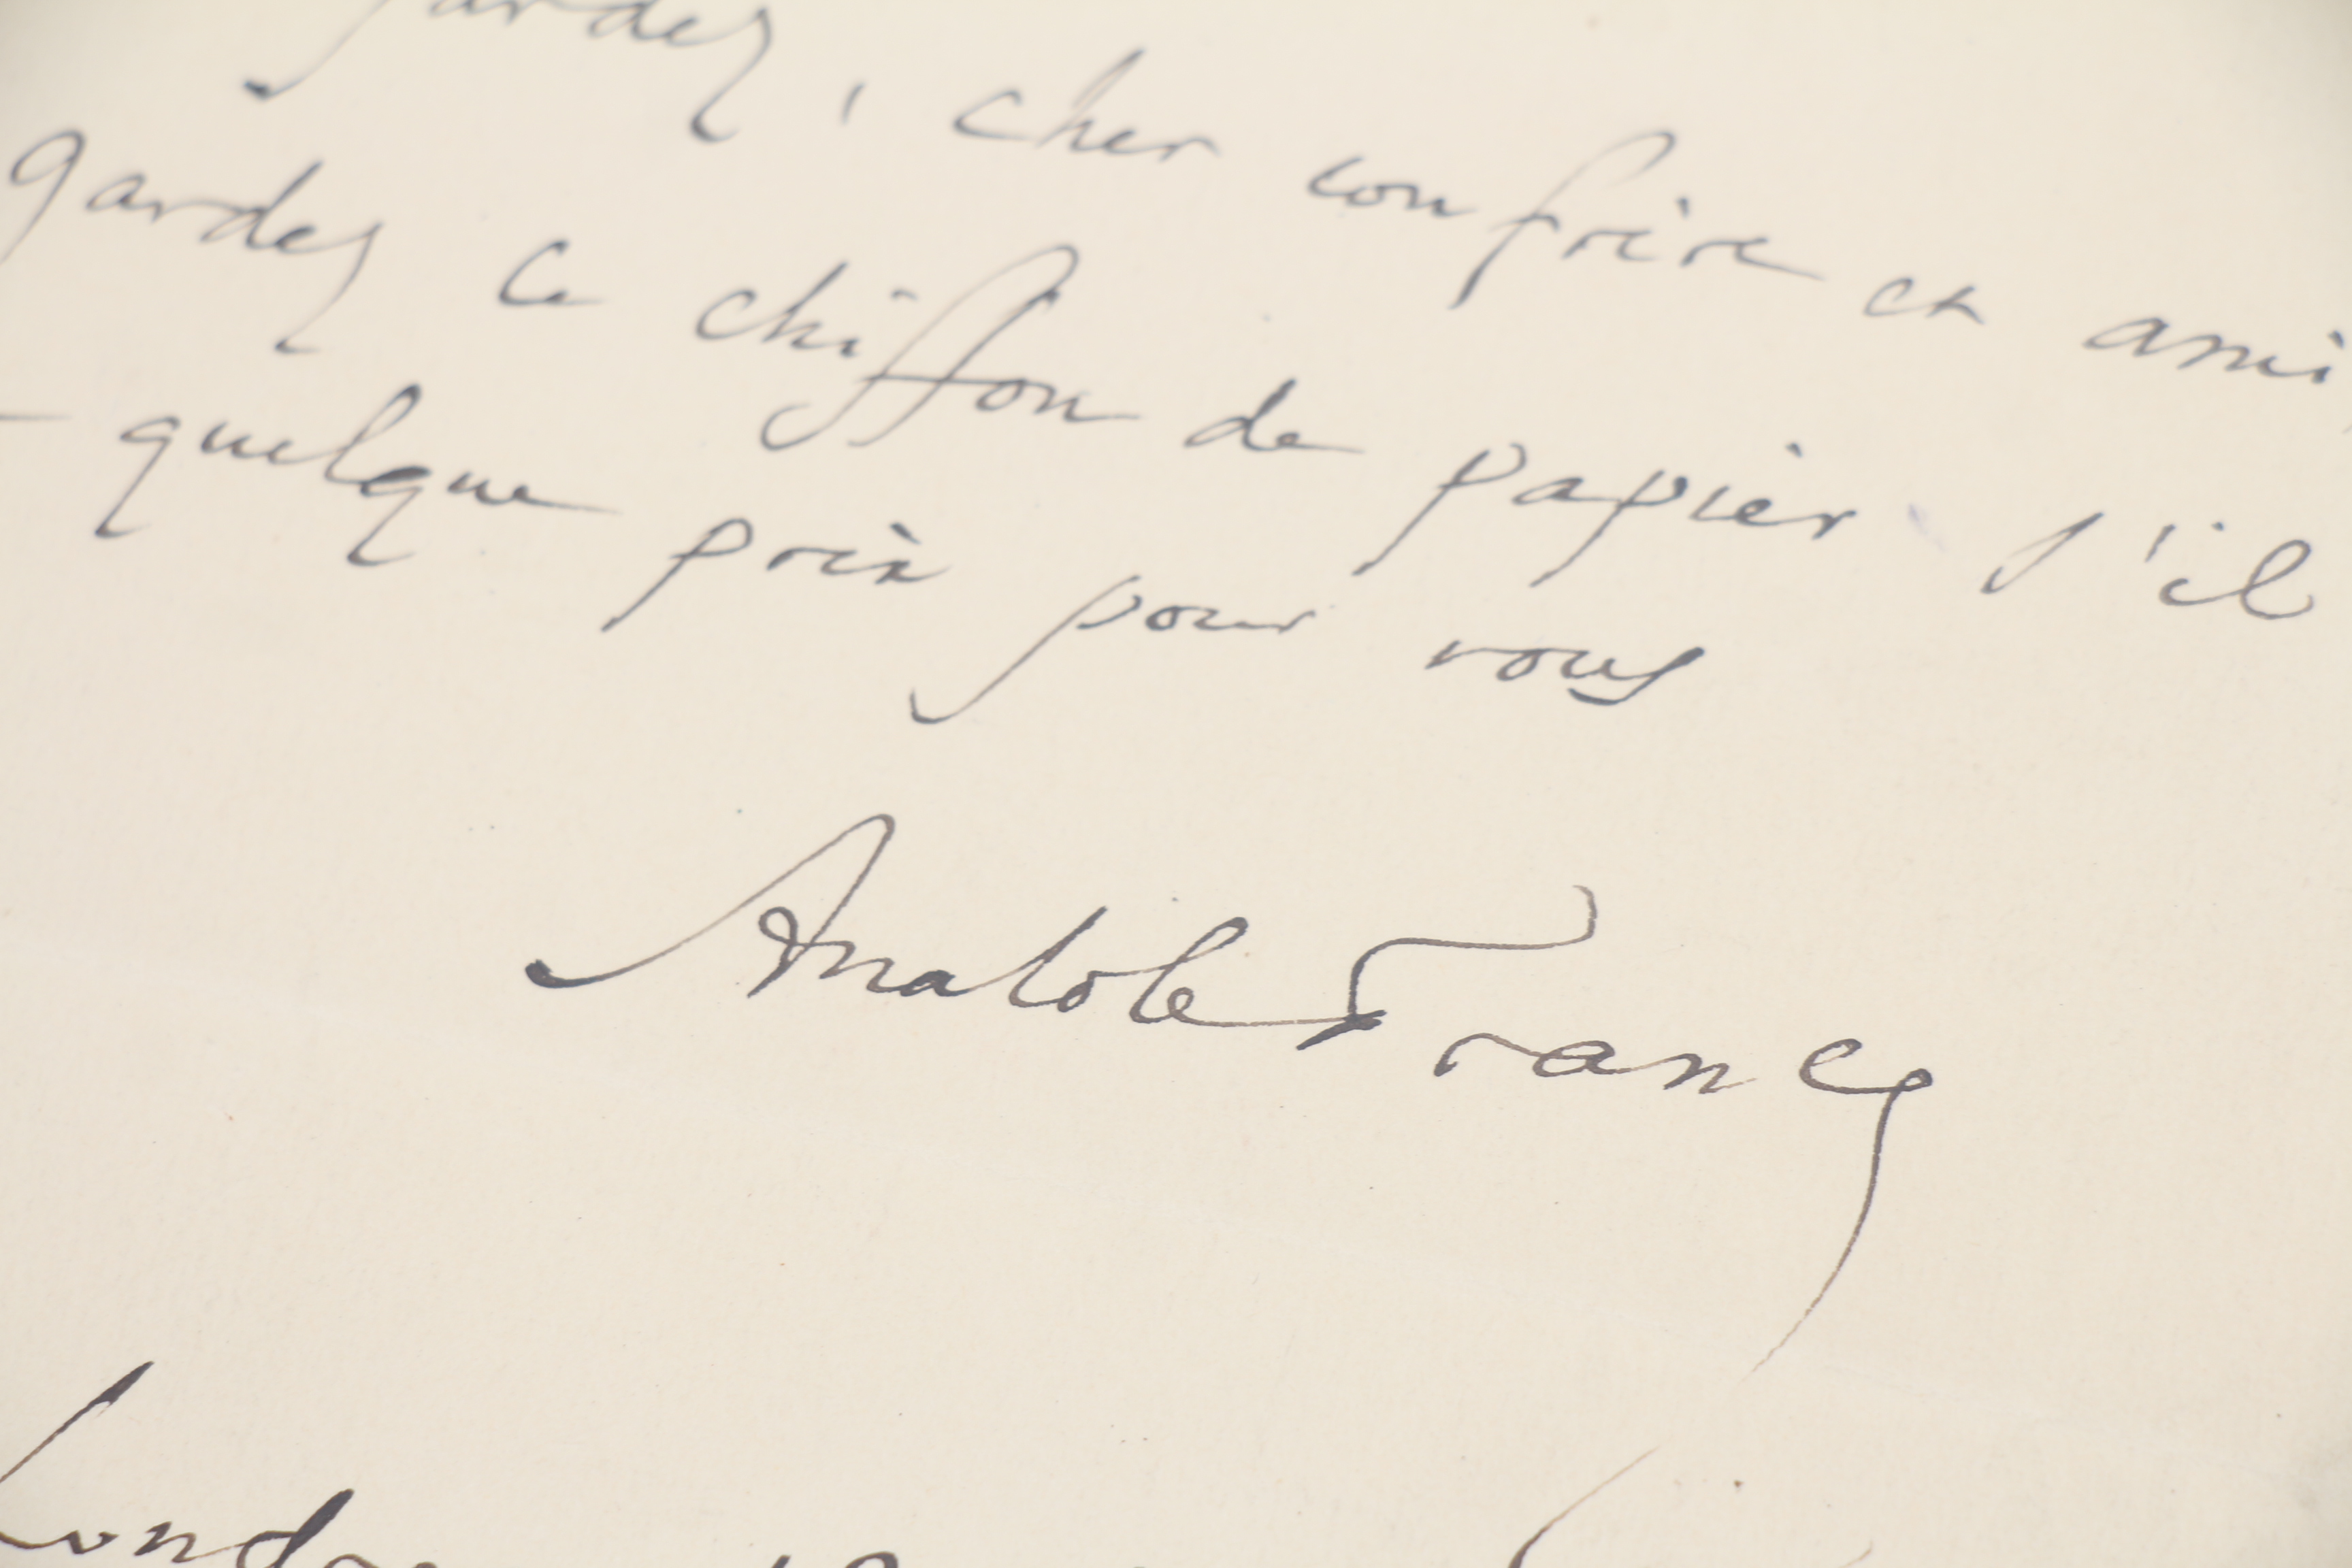 gardez, cher confrère et ami
gardez ce chiffon de papier s'il
quelque prix pour vous
Anatole France